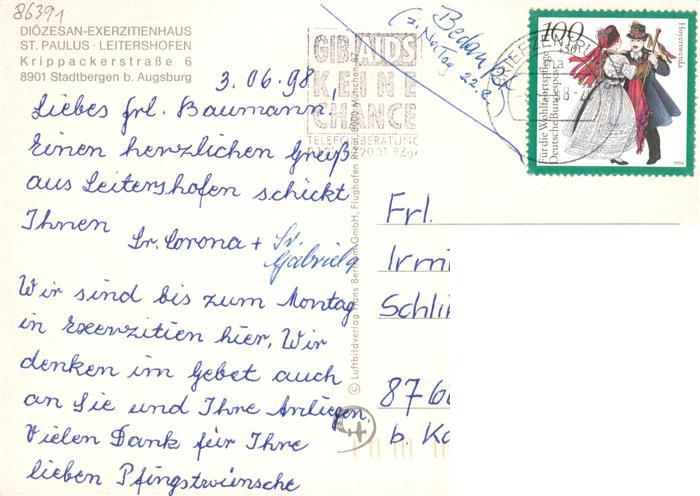 86391
DIÖZESAN-EXERZITIENHAUS
ST. PAULUS · LEITERSHOFEN
Krippackerstraße 6
8901 Stadtbergen b. Augsburg
3.06.98,
Liebes Frl. Baumann.
Einen herzlichen Gruß
aus Leitershofen schickt
Ihnen
Sr. Corona + Sr.
Gabriela
Wir sind bis zum Montag
in Exerzitien hier. Wir
denken im Gebet auch
an Sie und Ihre Anliegen.
Vielen Dank für Ihre
lieben Pfingstwünsche
© Luftbildverlag Hans Bertram GmbH, Flughafen Riem, 8000 München 87
GIB AIDS
KEINE
CHANCE
TELEFONBERATUNG
Bedankt
22.6.
BRIEFZENTRUM
100
Hoyerswerda
Für die Wohlfahrtspflege
Deutsche Bundespost
1994
Frl.
Irmi
Schli
876
b. Ka